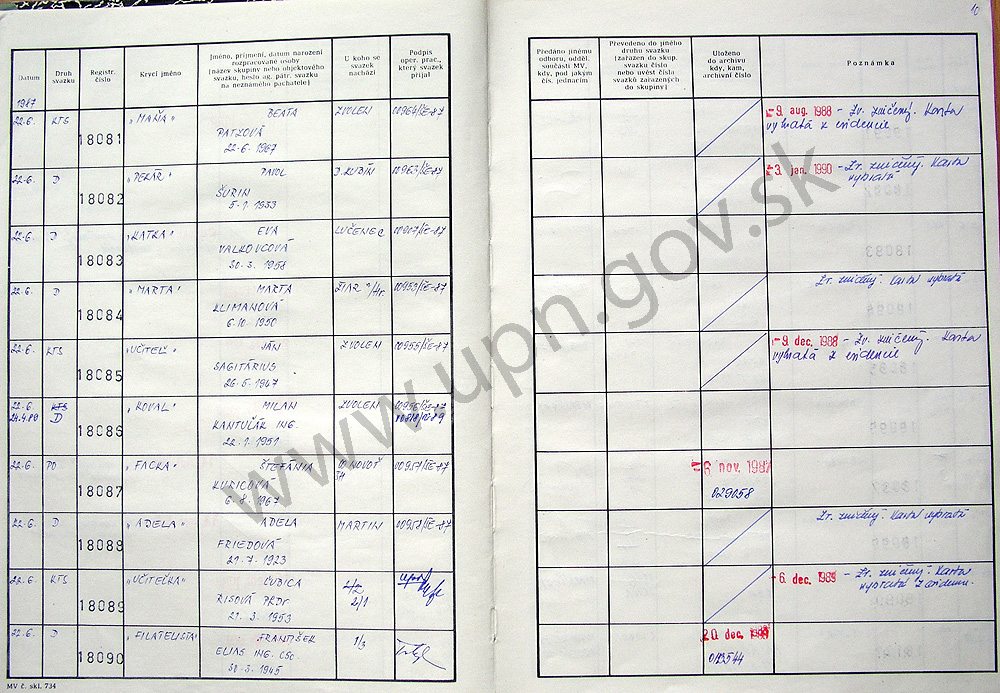 10
Datum
Druh svazku
Registr. číslo
Krycí jméno
Jméno, příjmení, datum narození
rozpracované osoby
(název skupiny nebo objektového
svazku, heslo ag. pátr. svazku
na neznámého pachatele)
U koho se
svazek
nachází
Podpis
oper. prac.,
který svazek
přijal
Předáno jinému
odboru, odděl.
součásti MV,
kdy, pod jakým
čís. jednacím
Převedeno do jiného
druhu svazku
(zařazen do skup.
svazku číslo
nebo uvést čísla
svazků zařazených
do skupiny)
Uloženo
do archivu
kdy, kam,
archivní číslo
Poznámka
1987
22.6. KTS 18081 "MAŇA" BEATA ZVOLEN 00964/ČE-87
PATZOVÁ
22-6-1967
-9. aug. 1988 - Zv. zničený. Karta
vybratá z evidencie
22.6. D 18082 "PEKÁŘ" PAVOL D. KUBÍN 00963/ČE-87
ŠURIN
5-1-1933
-3. jan. 1990 - Zv. zničený. Karta
vybratá
22.6. D 18083 "KATKA" EVA LUČENEC
VALKOVCOVÁ
30-3-1958
22.6. D 18084 "MARTA" MARTA ŽIAR n/Hr.
KLIMANOVÁ
6-10-1950
Zv. zničený. Karta vybratá
22.6. KTS 18085 "UČITEĽ" JÁN ZVOLEN 00955/ČE-87
SAGITÁRIUS
26-5-1947
-9. dec. 1988 - Zv. zničený. Karta
vybratá z evidencie
22.6. KTS 18086 "KOVAL" MILAN ZVOLEN 00956/ČE-87
24.4.89 D KANTULÁR ING.
22-1-1951
22.6. PO 18087 "FACKA" ŠTEFÁNIA
KUBICOVÁ
6-8-1967
6 nov. 1987
029058
22.6. D 18088 "ADELA" ADELA MARTIN 00958/ČE-87
FRIEDOVÁ
21-7-1923
Zv. zničený. Karta vybratá
22.6. KTS 18089 "UČITEĽKA" ĽUBICA
RISOVÁ PhDr 2/1
21-3-1953
-6. dec. 1989 - Zv. zničený. Karta
22.6. D 18090 "FILATELISTA" FRANTIŠEK 1/3
ELIAS ING. CSc.
30-3-1945
20 dec.
MV č. skl. 734
www.upn.gov.sk